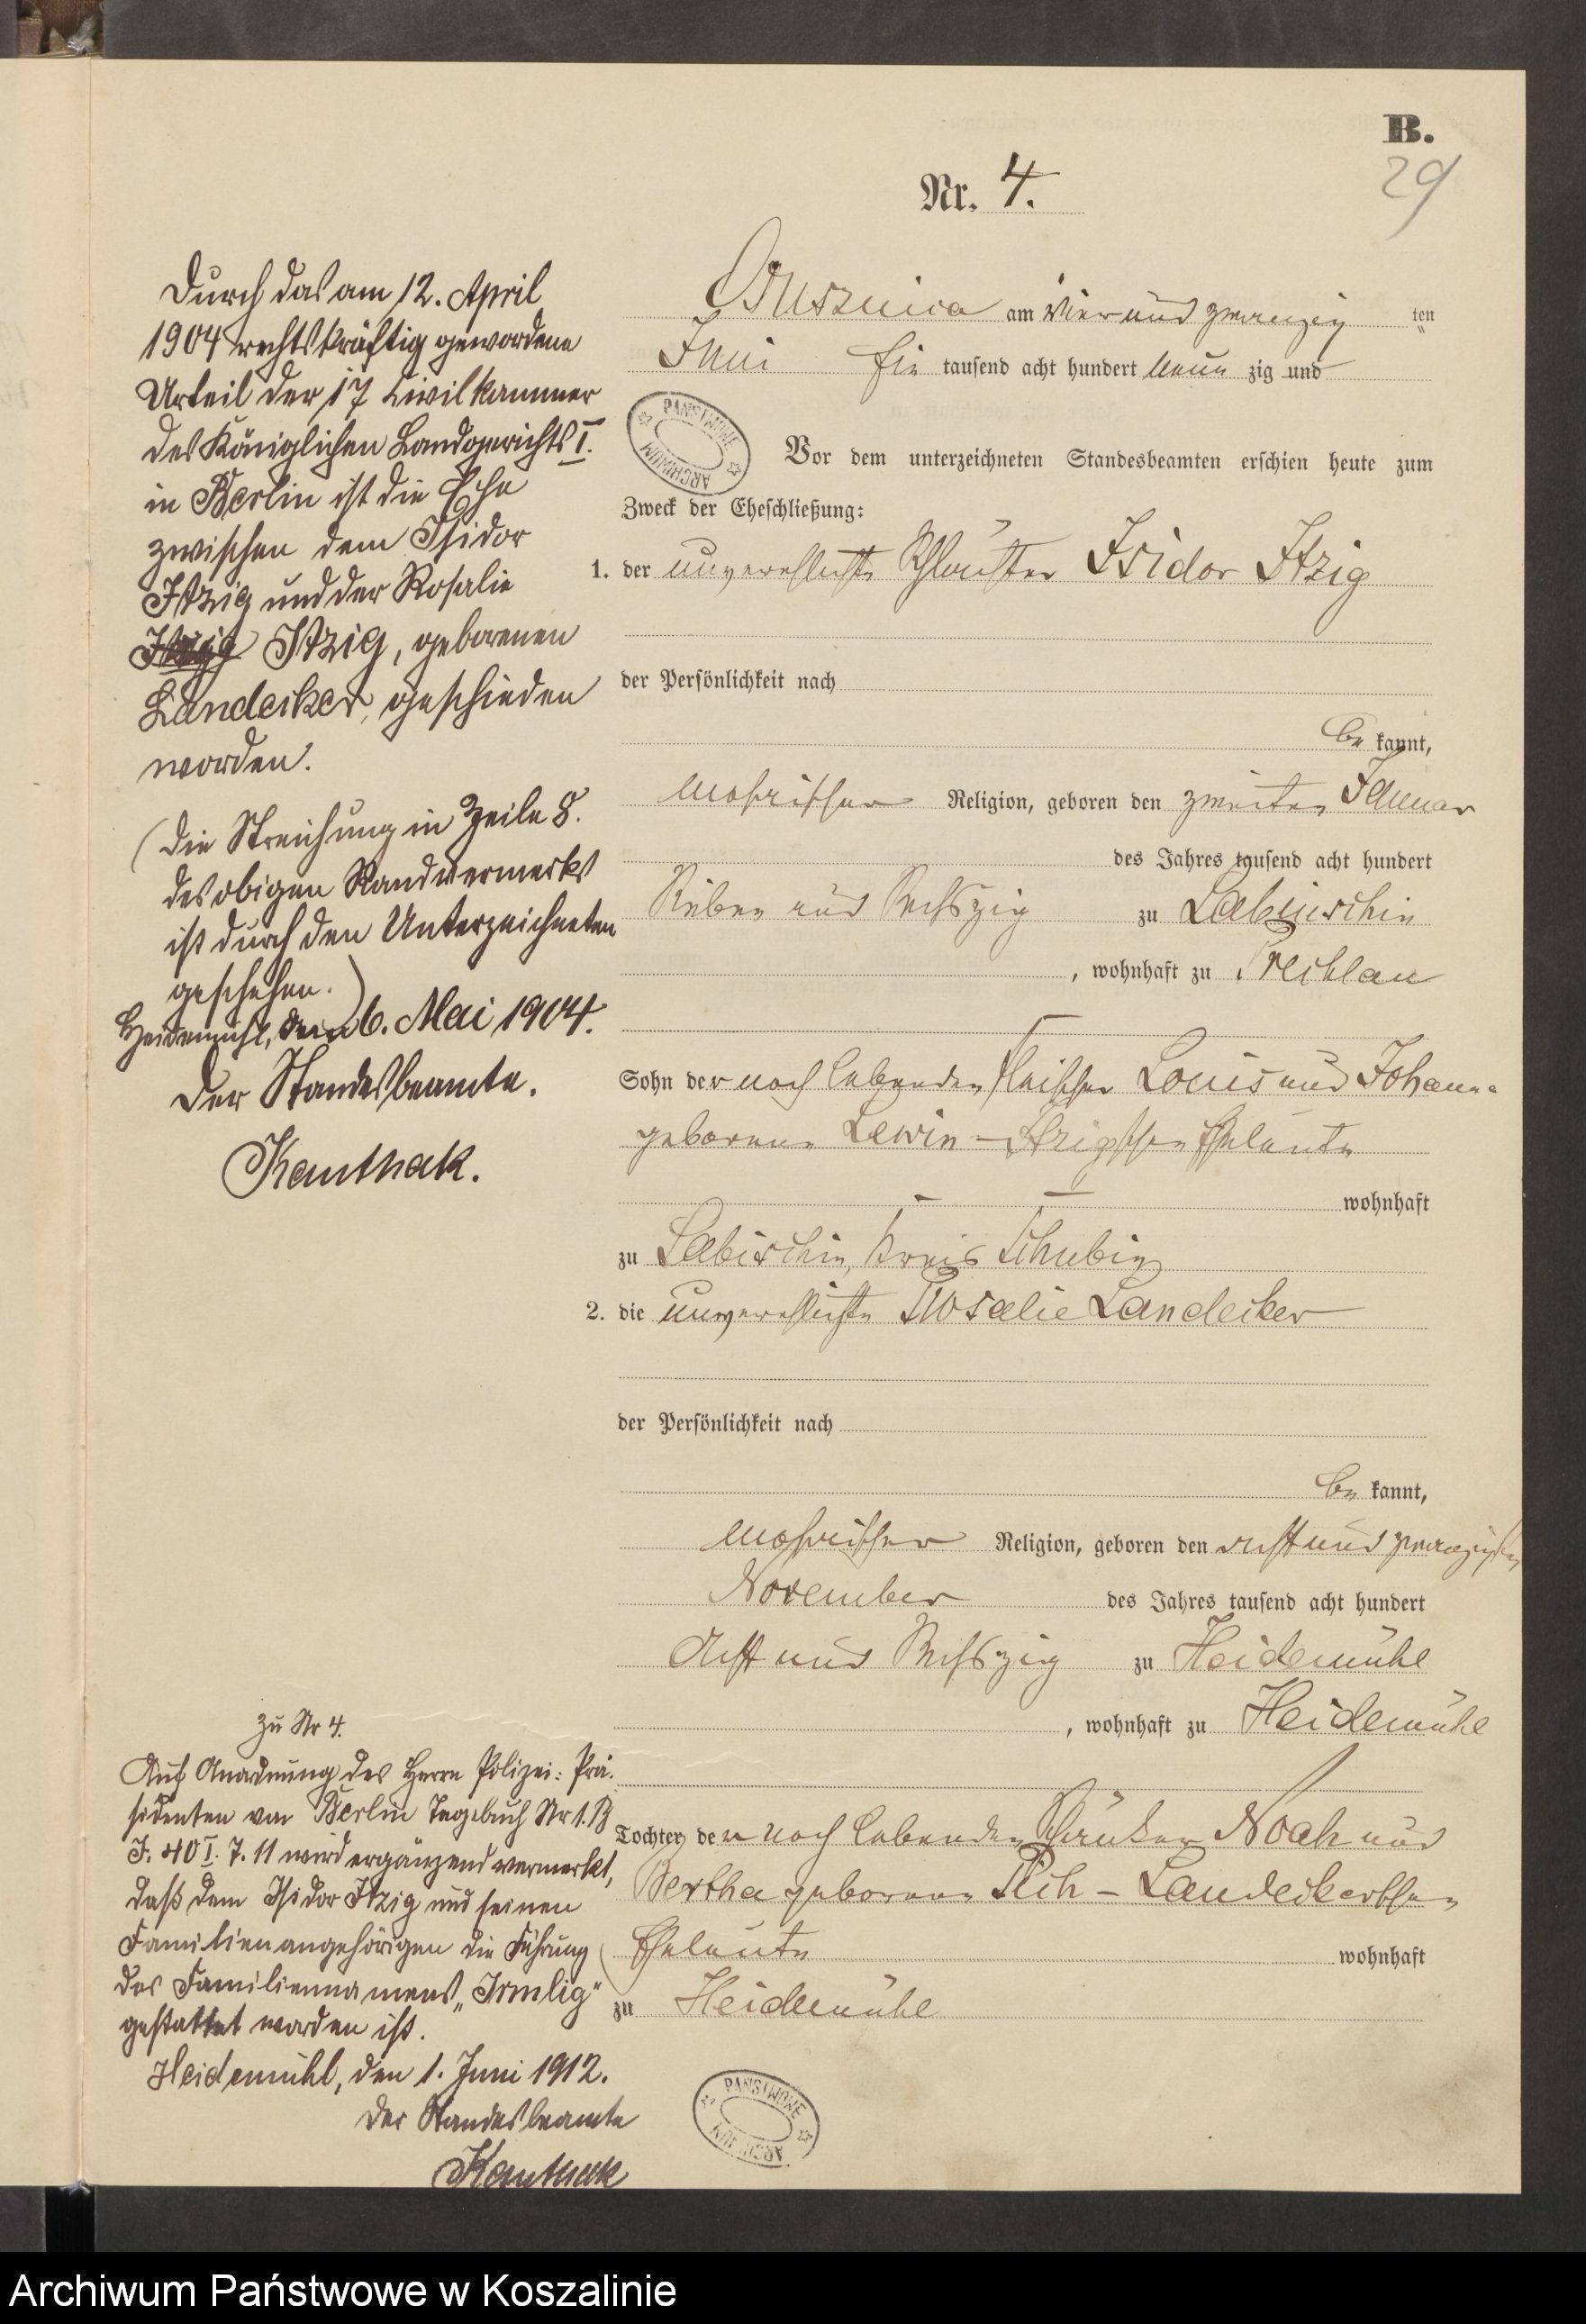 B.
29
Nr. 4.
Osusznica am vier und zwanzig ten
Juni Ein tausend acht hundert neun zig und
PAŃSTWOWE ARCHIWUM
Vor dem unterzeichneten Standesbeamten erschien heute zum
Zweck der Eheschließung:
1. der unverehelichte Isidor Itzig
der Persönlichkeit nach
be kannt,
mosaischer Religion, geboren den zweiten Januar
des Jahres tausend acht hundert
sieben und sechszig zu Labischin
, wohnhaft zu Prechlau
Sohn der noch lebenden Fleischer Louis und Johanna
geborene Lewin - Itzigschen Eheleute
wohnhaft
zu Labischin, Kreis Schubin
2. die unverehelichte Rosalie Landecker
der Persönlichkeit nach
be kannt,
mosaischer Religion, geboren den acht und zwanzigsten
November des Jahres tausend acht hundert
acht und sechszig zu Heidemühl
, wohnhaft zu Heidemühl
Tochter der noch lebenden Noah und
Bertha geborene - Landeckerschen
Eheleute wohnhaft
zu Heidemühl
PAŃSTWOWE ARCHIWUM
Durch das am 12. April
1904 rechtskräftig gewordene
Urteil der 17 Civilkammer
des Königlichen Landgerichts I.
in Berlin ist die Ehe
zwischen dem Isidor
Itzig und der Rosalie
Itzig Itzig, geborenen
Landecker, geschieden
worden.
(Die Streichung in Zeile 8.
des obigen Randvermerks
ist durch den Unterzeichneten
geschehen.)
Heidemühl, den 6. Mai 1904.
Der Standesbeamte.
Kanthak.
Zu Nr 4.
Auf Anordnung des Herrn Polizei: Prä-
sidenten von Berlin Tagebuch Nr 1. B
J. 40 I. 7. 11 wird ergänzend vermerkt,
daß dem Isidor Itzig und seinen
Familienangehörigen die Führung
des Familiennamens „Irmlig"
gestattet worden ist.
Heidemühl, den 1. Juni 1912.
Der Standesbeamte
Kanthak
Archiwum Państwowe w Koszalinie